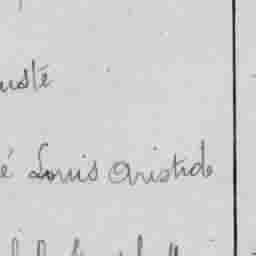 usté
é Louis Aristide